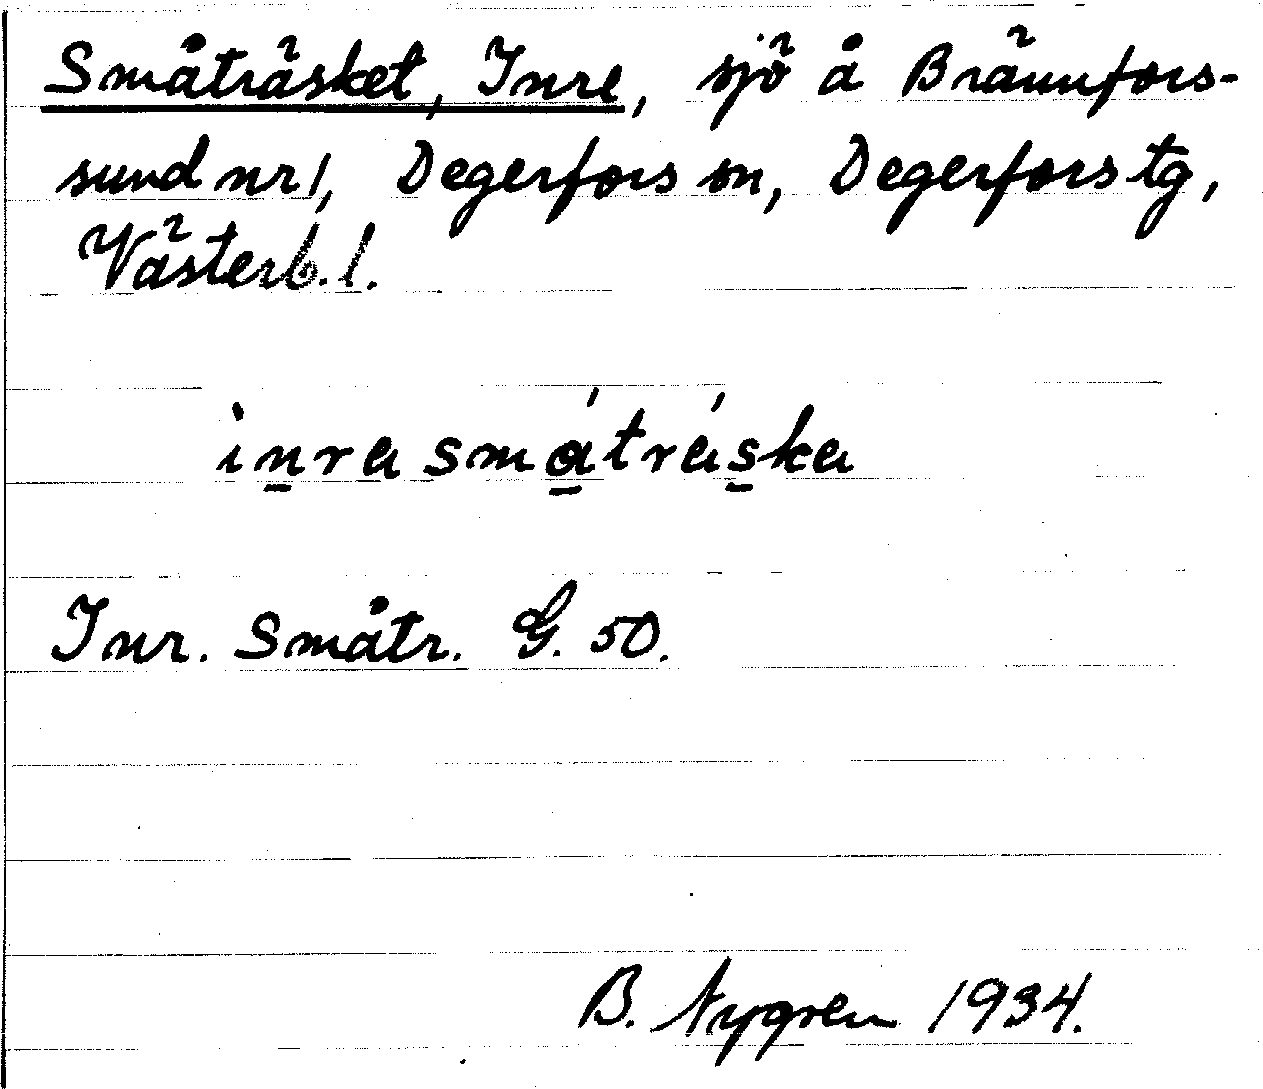 Småträsket, Inre, sjö å Brännfors-
sund nr 1, Degerfors sn, Degerfors tg,
Västerb. l.
inra småträska
Inr. Småtr. G. 50.
B. Nygren 1934.